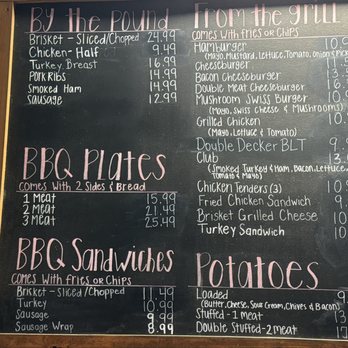 By the Pound
Brisket - Sliced/Chopped 24.99
Chicken - Half 9.49
Turkey Breast 16.99
Pork Ribs 14.99
Smoked Ham 14.99
Sausage 12.99
BBQ Plates
Comes with 2 Sides & Bread
1 Meat 15.99
2 Meat 21.49
3 Meat 25.49
BBQ Sandwiches
Comes with fries or Chips
Brisket - Sliced/Chopped 11.49
Turkey 10.99
Sausage 9.99
Sausage Wrap 8.99
From the grill
Comes with fries or Chips
Hamburger
(Mayo, Mustard, Lettuce, Tomato, Onion &
Cheeseburger
Bacon Cheeseburger
Double Meat Cheeseburger
Mushroom Swiss Burger
(Mayo, Swiss Cheese & Mushrooms)
Grilled Chicken
(Mayo, Lettuce & Tomato)
Double Decker BLT
Club
(Smoked Turkey & Ham, Bacon, Lettuce,
Tomato & Mayo)
Chicken Tenders (3)
Fried Chicken Sandwich
Brisket Grilled Cheese
Turkey Sandwich
Potatoes
Loaded
(Butter, Cheese, Sour Cream, Chives & Bacon)
Stuffed - 1 meat
Double Stuffed - 2 meat